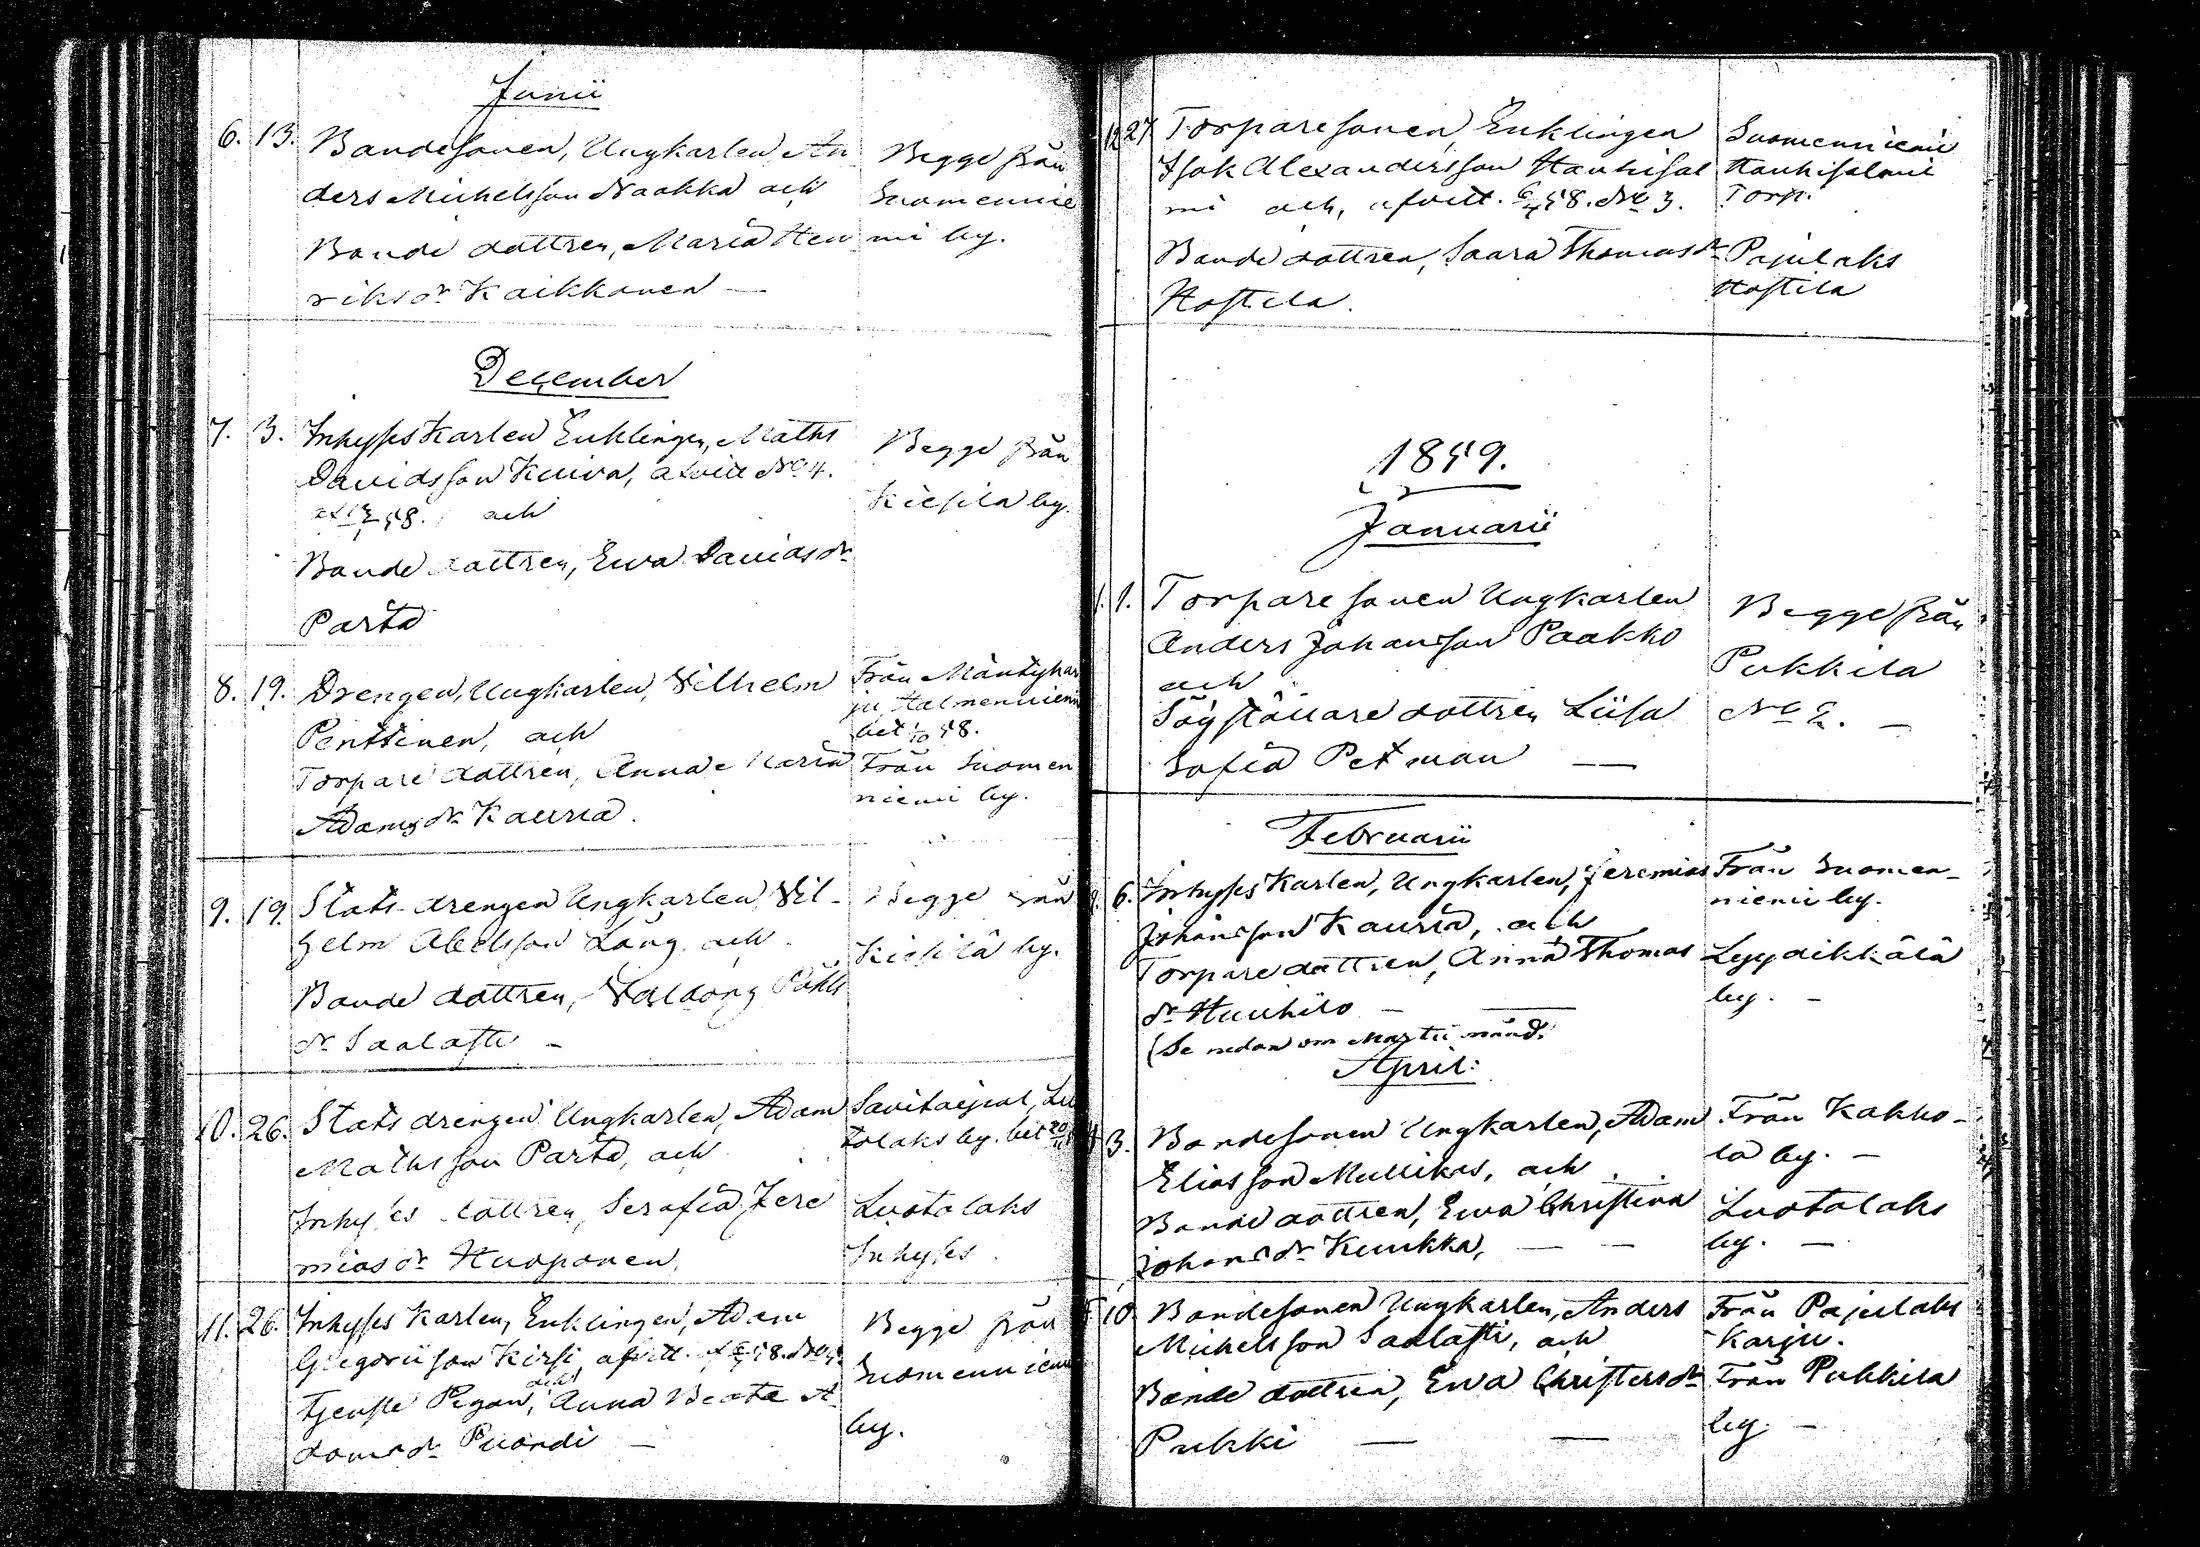 Junii
6. 13. Bondesonen, Ungkarlen An
ders Michelsson Naakka och
Bonde dottren, Maria Hen
riksdr Kaikkonen —
Begge från
Suomennie
mi by.
December
7. 3. Inhyseskarlen Enklingen, Maths
Davidsson Kuiva, No 4.
58. och
Bonde dottren, Ewa Davidsdr
Parta
Begge från
Kiesilä by.
8. 19. Drengen, Ungkarlen, Vilhelm
Penttinen, och
Torpare dottren, Anna Maria
Adamsdr Kauria.
Från Mäntyhar
ju Halmenniemi
bet 58.
Från Suomen
niemi by.
9. 19. Stats drengen Ungkarlen Vil-
helm Abelsson Lång och
Bonde dottren, Påhls
dr Saalasti —
Begge från
Kiesilä by.
10. 26. Stats drengen Ungkarlen, Adam
Mathsson Parta, och
Inhyses dottren, Serafia Jere
miasdr Huoponen.
Savitaipal,
by. bet
Luotolaks
Inhyses
11. 26. Inhyses Karlen, Enklingen, Adam
Gregorii son Kirsi, afvitt. 58. No
Tjenste Pigan, och Anna Beata A
damsdr Puondi —
Begge från
Suomenniemi
by.
12 27 Torparesonen, Enklingen
Isak Alexandersson Hauhisal
mi och, afvitt. 58. No 3.
Bonde dottren, Saara Thomasdr
Hostila.
Suomenniemi
Hauhisalmi
Torp.
Pajulaks
Hostila
1859.
Januarii
1. 1. Torpare sonen Ungkarlen
Anders Johansson Paakko
och
Sågställare dottren Liisa
Sofia Petman —
Begge från
Pukkila
No 2. —
Februarii
6. Inhyses Karlen, Ungkarlen, Jeremias
Johansson Kauria, och
Torpare dottren, Anna Thomas
dr Huuhilo —
Från Suomen-
niemi by.
Lyydikkälä
by. —
(Se nedan om Martii månd.
April:
3. Bondesonen Ungkarlen, Adam
Eliasson Mullikas, och
Bonde dottren, Ewa Christina
Johansdr Kuukka, — —
Från Kakko-
la by. —
Luotolaks
by. —
10 Bondesonen Ungkarlen, Anders
Michelsson Saalasti, och
Bonde dottren, Ewa Christersdr
Pukki — —
Från Pajulaks
Karju.
Från Pukkila
by —